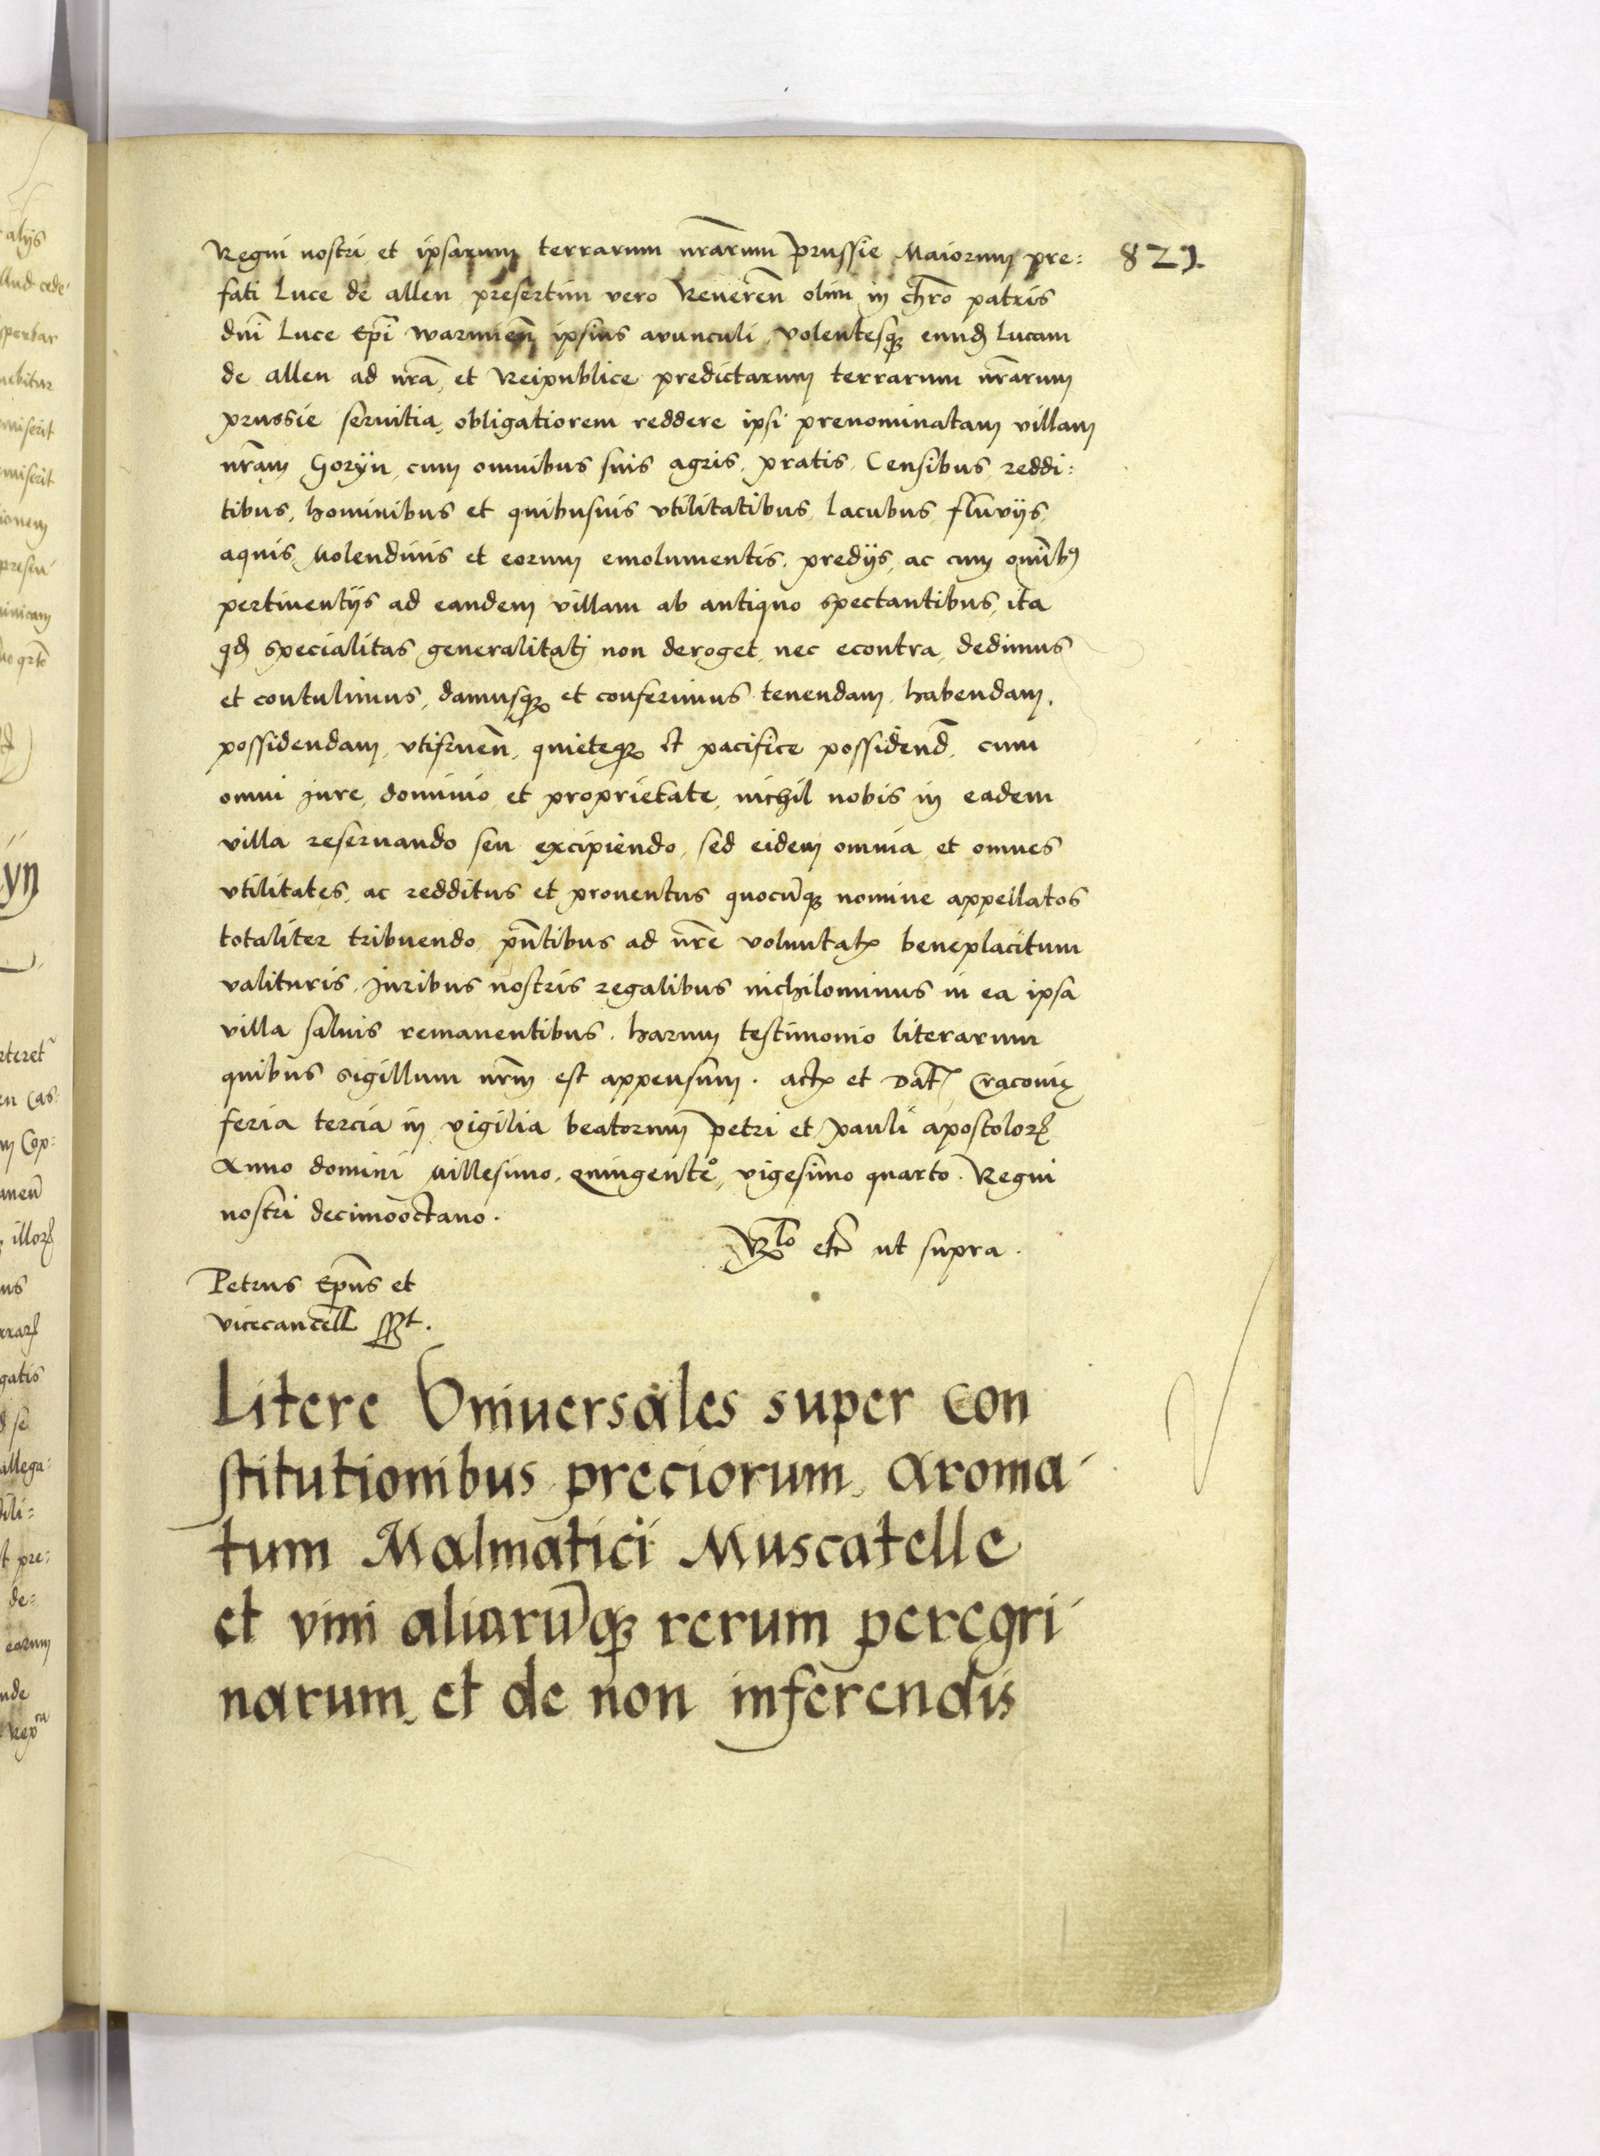 821.
Regni nostri et ipsarum terrarum nr̄arum prussie Maiorum pre:
fati Luce de allen presertim vero Reueren̄ olim in chr̄o patris
dnī Luce Epī warmien̄ ipsius auunculi, volentesqꝫ eund̄ Lucam
de allen ad nrā et Reipublice predictarum terrarum nr̄arum
prussie seruitia, obligatiorem reddere ipsi prenominatam villam
nr̄am Goryn, cum omnibus suis agris, pratis, Censibus, reddi:
tibus, hominibus et quibusuis vtilitatibus, lacubus, fluvijs,
aquis, Molendinis et eorum emolumentis, predijs, ac cum omnibꝰ
pertinentijs ad eandem villam ab antiquo spectantibus, ita
qd̄ specialitas generalitatj non deroget, nec econtra, dedimus
et contulimus, damusqꝫ et conferimus tenendam, habendam,
possidendam, vtifruen̄, quieteqꝫ et pacifice possidend̄, cum
omni jure, dominio, et proprietate, nichil nobis in eadem
villa reseruando seu excipiendo, sed eidem omnia et omnes
vtilitates, ac redditus et prouentus quocūqꝫ nomine appellatos
totaliter tribuendo pn̄tibus ad nr̄e voluntatꝭ beneplacitum
valituris, juribus nostris regalibus nichilominus in ea ipsa
villa saluis remanentibus. harum testimonio literarum
quibus sigillum nr̄m est appensum. actꝭ et Dat̄ Cracouię
feria tercia in vigilia beatorum petri et pauli apostolorꝝ
Anno domini Millesimo, quingenteº, vigesimo quarto. Regni
nostri decimooctauo.
Rlo etc̄ ut supra.
Petrus Ep̄us et
vicecancell̄ sst.
Litere Vniuersales super con
stitutionibus preciorum, aroma-
tum Malmatici Muscatelle
et vini aliarūqꝫ rerum peregri-
narum, et de non inferendis